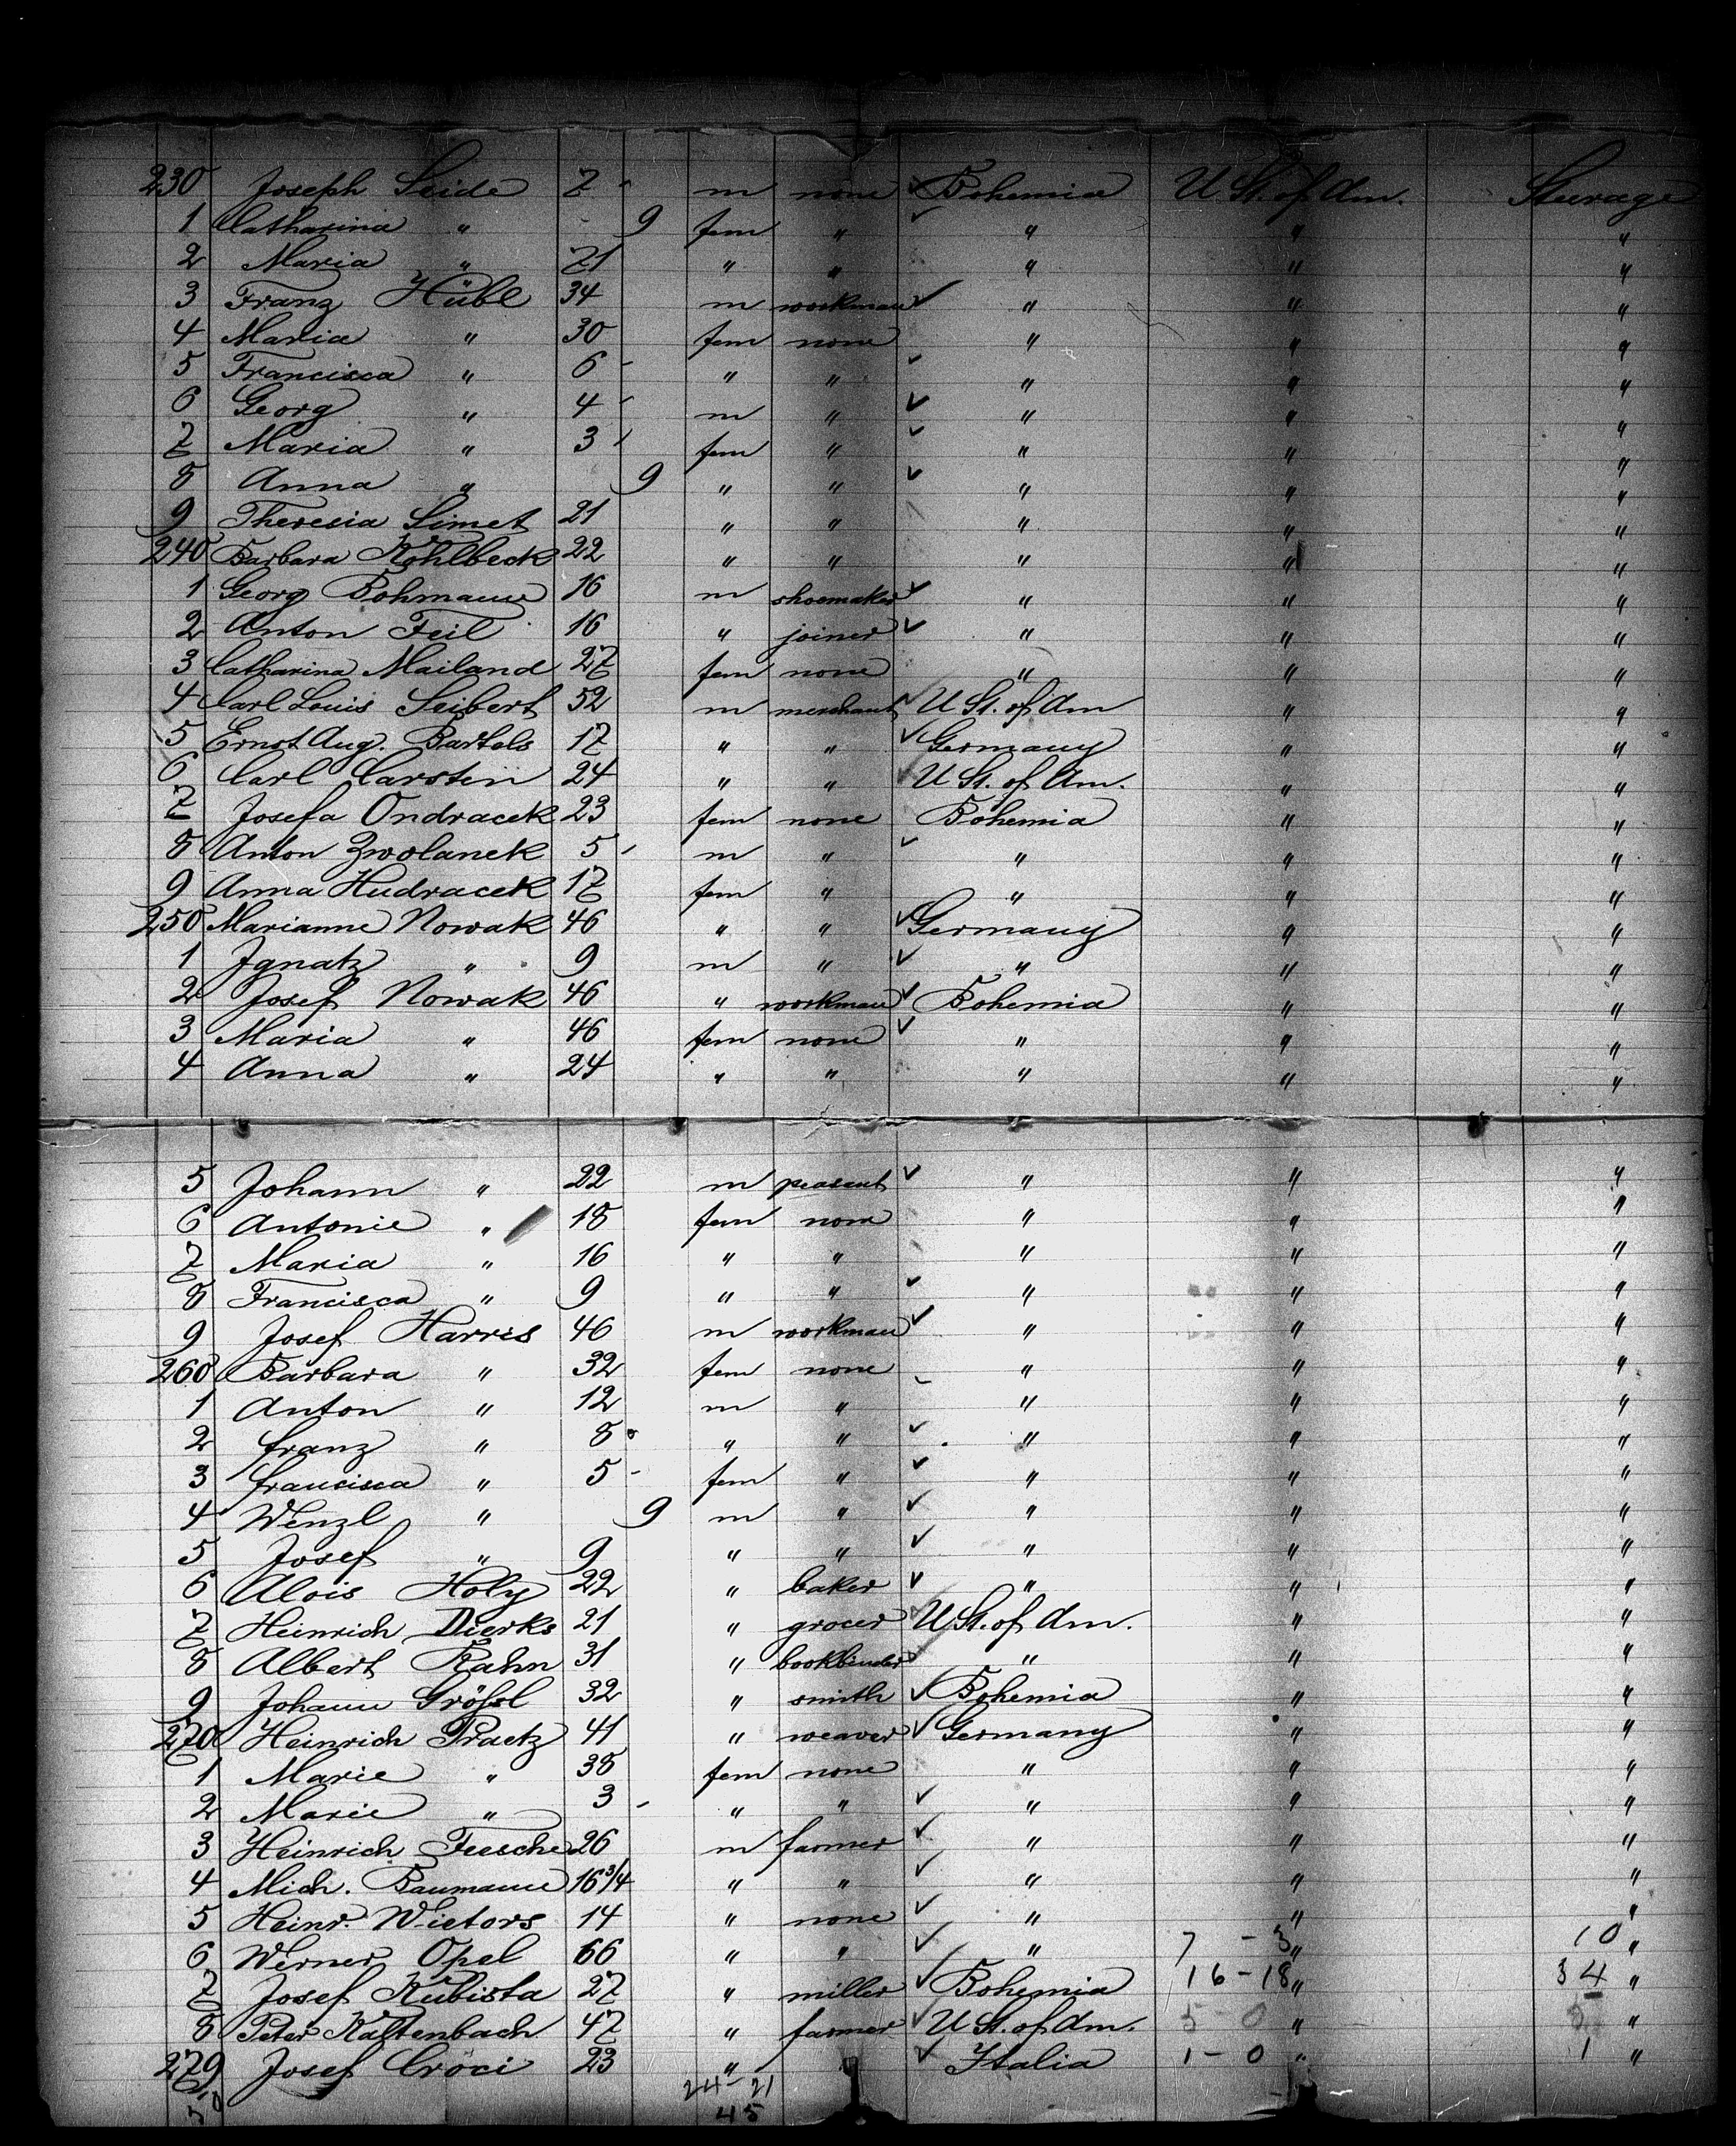 230 Joseph Seide 7 m none Bohemia U St. of Am. Steerage
1 Catharina " - 9 fem " " " "
2 Maria " 21 " " " " "
3 Franz Hübl 34 m workman " " "
4 Maria " 30 fem none " " "
5 Francisca " 6 " " " " "
6 Georg " 4 m " " " "
7 Maria " 3 fem " " " "
8 Anna " 9 " " " " "
9 Theresia Simet 21 " " " " "
240 Barbara Kohlbeck 22 " " " " "
1 Georg Bohmann 16 m shoemaker " " "
2 Anton Feil 16 " joiner " " "
3 Catharina Mailand 27 fem none " " "
4 Carl Louis Seibert 52 m merchant U St. of Am " "
5 Ernst Aug. Bartels 17 " " Germany " "
6 Carl Carsten 24 " " U St. of Am. " "
7 Josefa Ondracek 23 fem none Bohemia " "
8 Anton Zwolanek 5 m " " " "
9 Anna Hudracek 17 fem " " " "
250 Marianne Nowak 46 " " Germany " "
1 Ignatz " 9 m " " " "
2 Josef Nowak 46 " workman Bohemia " "
3 Maria " 46 fem none " " "
4 Anna " 24 " " " " "
5 Johann " 22 m peasant " " "
6 Antonie " 18 fem none " " "
7 Maria " 16 " " " " "
8 Francisca " 9 " " " " "
9 Josef Harris 46 m workman " " "
260 Barbara " 32 fem none " " "
1 Anton " 12 m " " " "
2 Franz " 8 " " " " "
3 Francisca " 5 fem " " " "
4 Wenzl " 9 m " " " "
5 Josef " 9 " " " " "
6 Alois Holy 22 " baker " " "
7 Heinrich Dierks 21 " grocer U St. of Am. " "
8 Albert Rahn 31 " bookbinder " " "
9 Johann Größl 32 " smith Bohemia " "
270 Heinrich Praetz 41 " weaver Germany " "
1 Marie " 38 fem none " " "
2 Marie " 3 " " " " "
3 Heinrich Feesche 26 m farmer " " "
4 Mich. Baumann 16 3/4 " " " " "
5 Heinr. Wietors 14 " none " " "
6 Werner Opel 66 " " " 7 - 3 " 10 "
7 Josef Kubista 27 " miller Bohemia 16 - 18 " 34 "
8 Peter Kaltenbach 47 " farmer U St. of Am. 5 0 " "
279 Josef Cröci 23 " " Italia 1 - 0 " 1 "
24 - 21
45